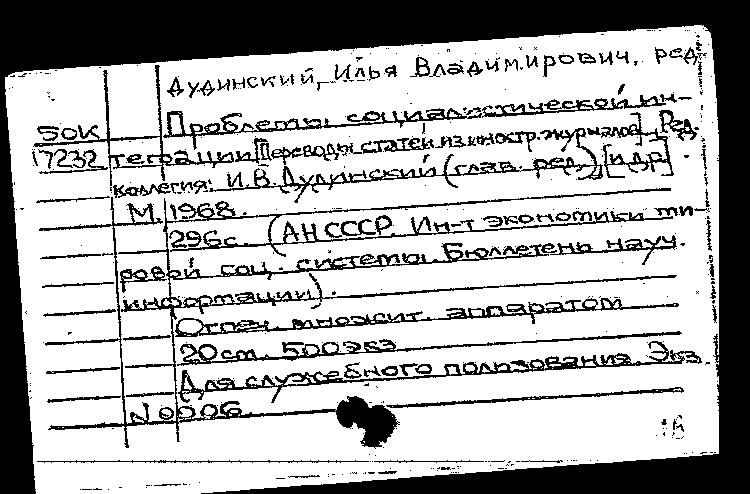 Дудинский, Илья Владимирович, ред.
Проблемы социалистической ин-
50К
17232 теграции [Переводы статей из иностр. журналов]. Ред.
коллегия: И.В. Дудинский (глав. ред.), [и др.].
М., 1968.
296с. (АН СССР. Ин-т экономики ми-
ровой соц. системы. Бюллетень науч.
информации).
Отпеч. множит. аппаратом
20см. 500экз
Для служебного пользования. Экз.
N 0006.